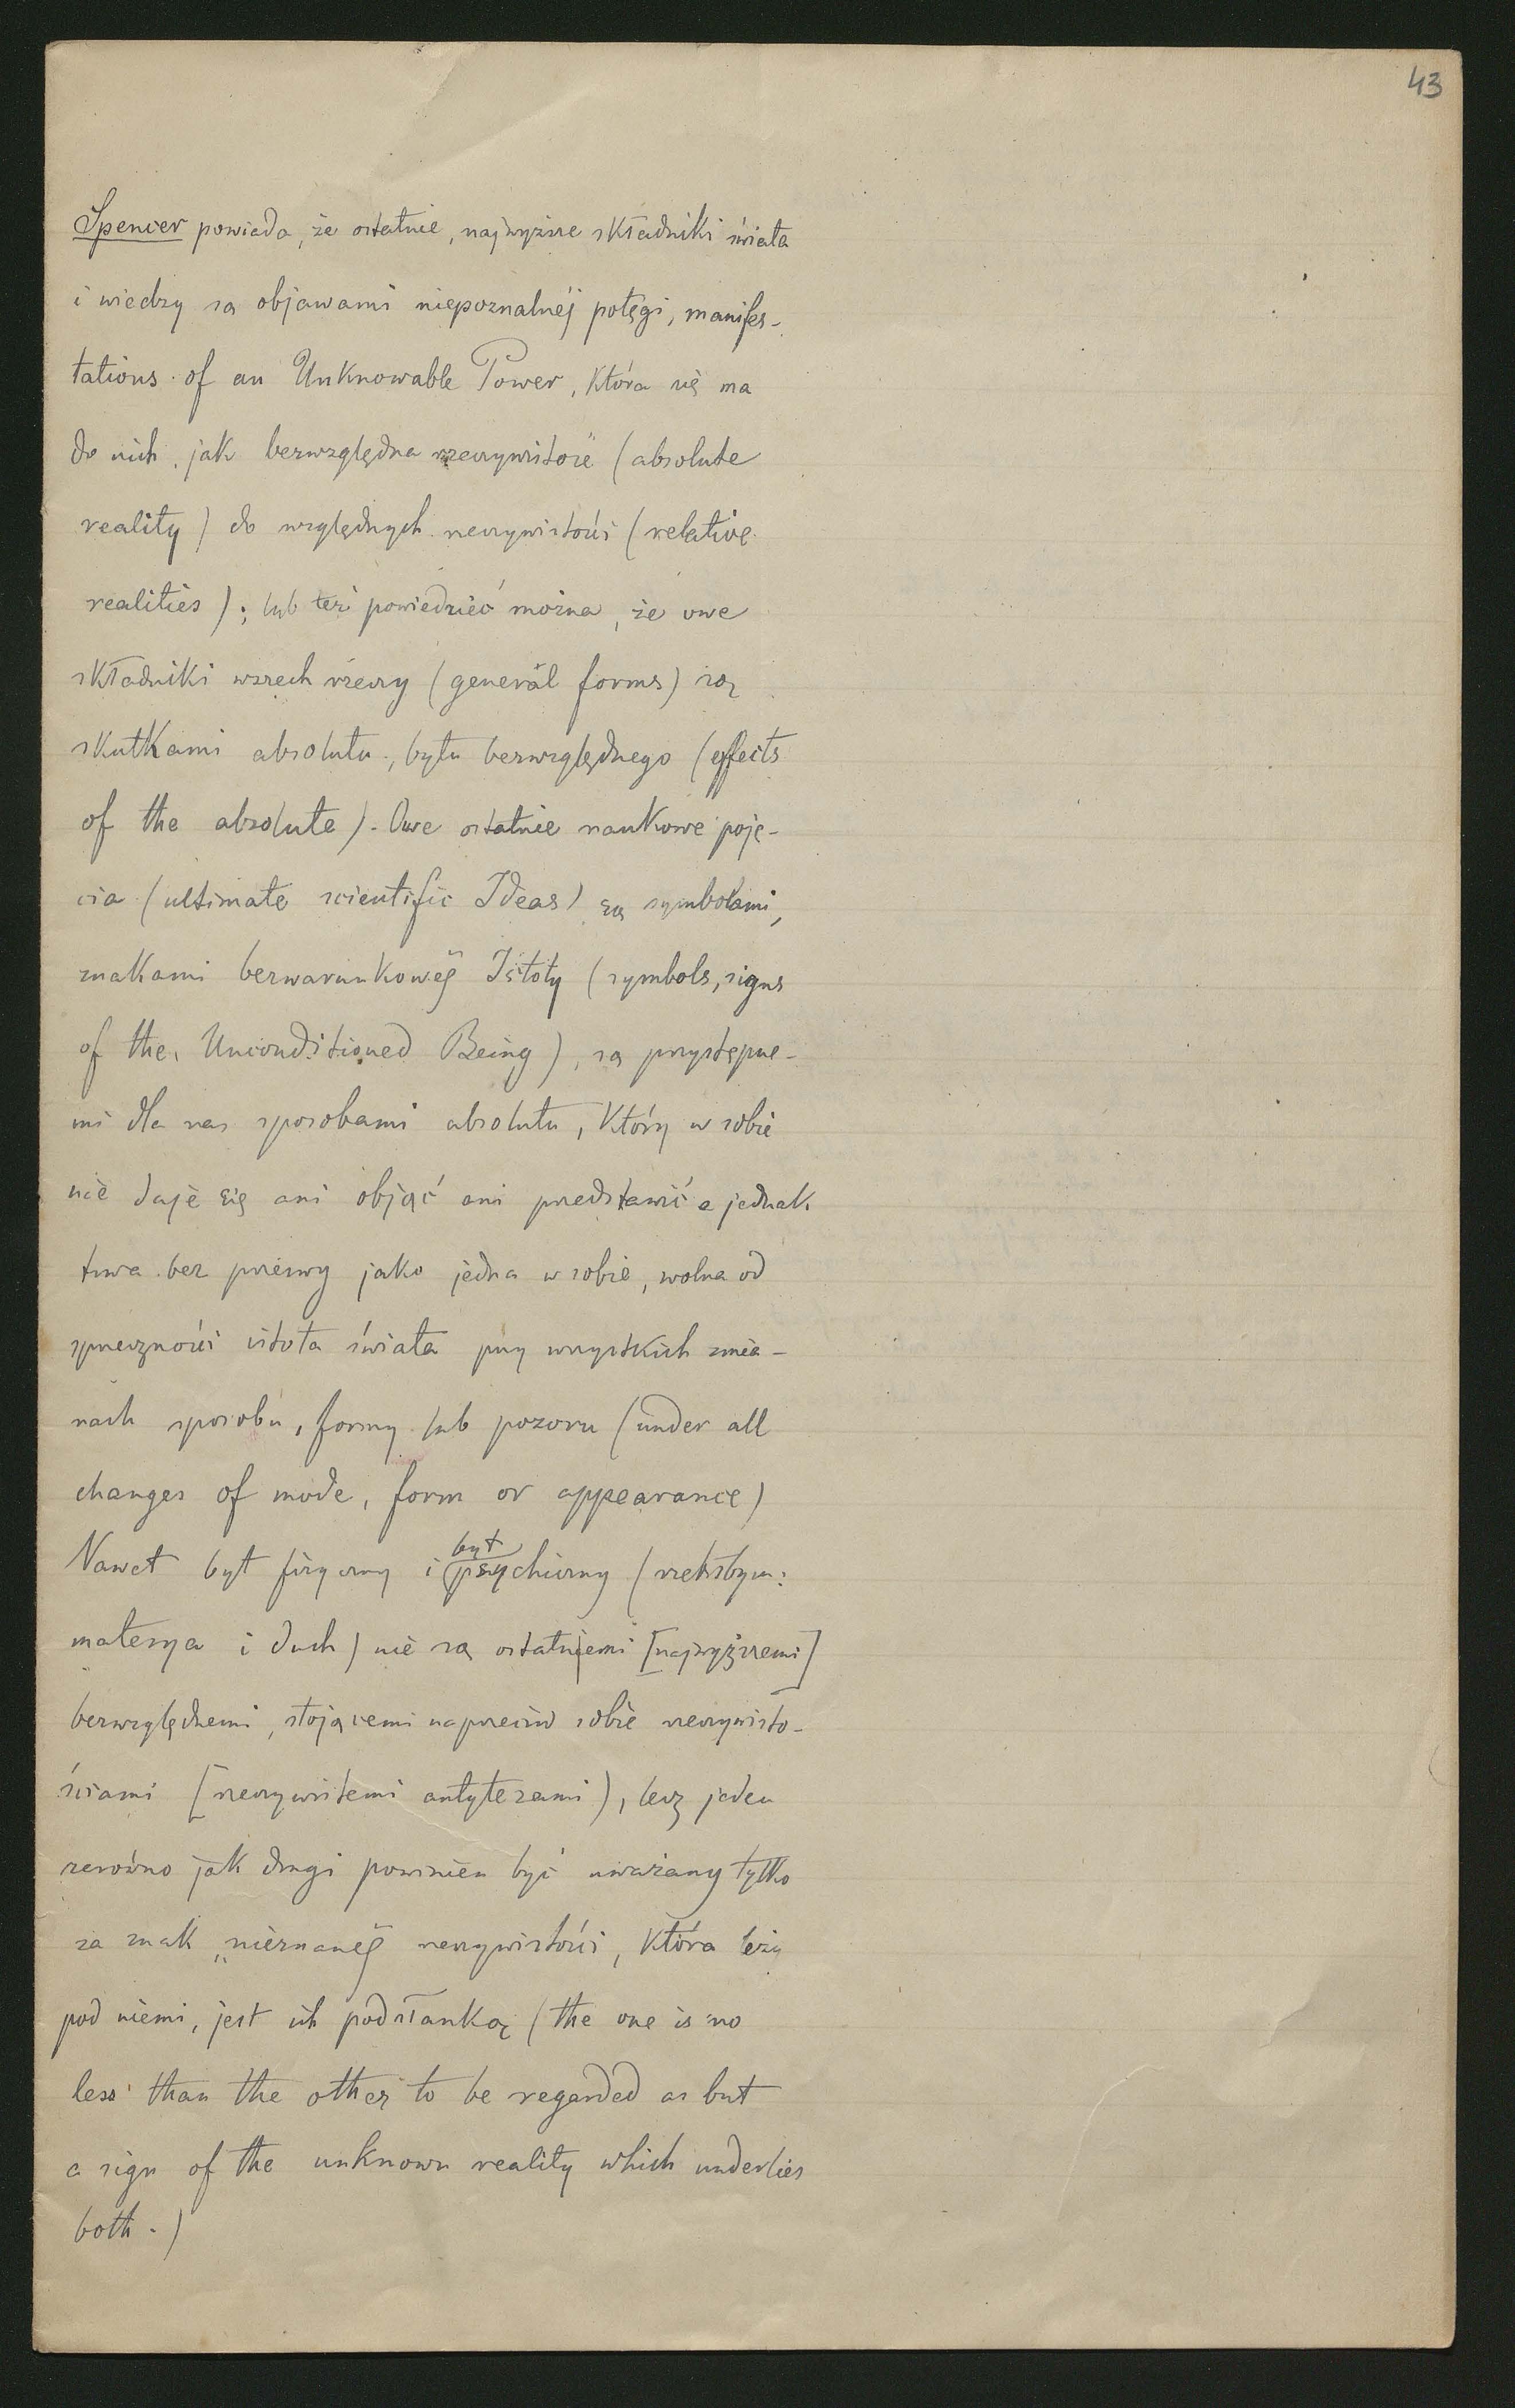 43
Spencer powiada, że ostatnie, najwyższe składniki świata
i wiedzy są objawami niepoznalnéj potęgi, manifes-
tations of an Unknowable Power, która się ma
do nich, jak bezwzględna rzeczywistość (absolute
reality) do względnych rzeczywistości (relative
realities); lub też powiedzieć można, że owe
składniki wszech rzeczy (general forms) są
skutkami absolutu, bytu bezwzględnego (effects
of the absolute). Owe ostatnie naukowe poję-
cia (ultimate scientific Ideas) są symbolami,
znakami bezwarunkowéj Istoty (symbols, signs
of the Unconditioned Being), są przystępne-
mi dla nas sposobami absolutu, który w sobie
nie daje się ani objąć ani przedstawić a jednak
trwa bez przerwy jako jedna w sobie, wolna od
sprzeczności istota świata przy wszystkich zmia-
nach sposobu, formy lub pozoru (under all
changes of mode, form or appearance)
Nawet byt fizyczny i byt psychiczny (rzekłbym:
materya i duch) nie są ostatniemi [najwyższemi]
bezwzględnemi, stojącemi naprzeciw sobie rzeczywisto-
ściami [rzeczywistemi antytezami), lecz jeden
zarówno jak drugi powinien być uważany tylko
za znak „nieznanéj rzeczywistości, która leży
pod niemi, jest ich podstawką (the one is no
less than the other to be regarded as but
a sign of the unknown reality which underlies
both.)